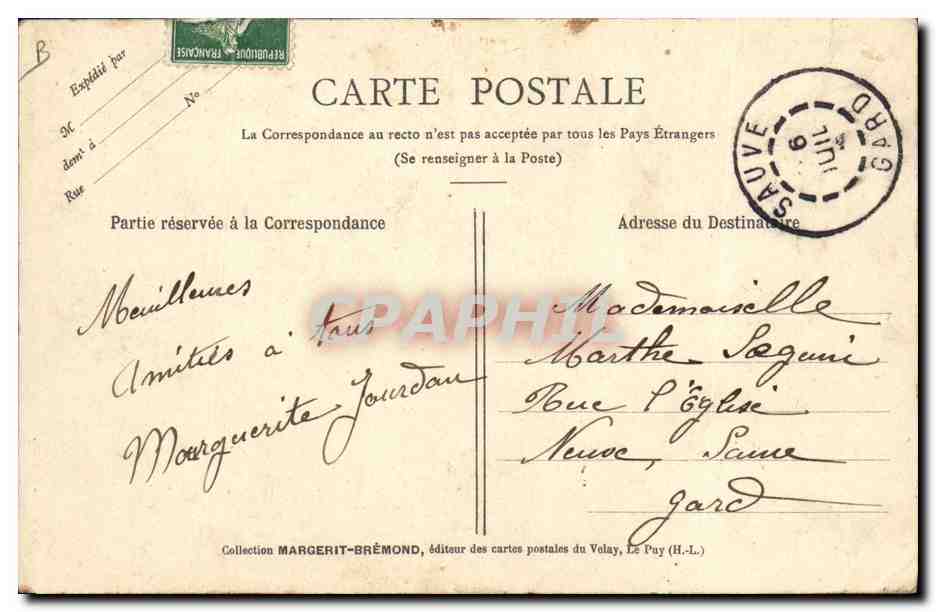 B
RÉPUBLIQUE FRANÇAISE
Expédié par
M
demt à
Rue
No
CARTE POSTALE
La Correspondance au recto n'est pas acceptée par tous les Pays Étrangers
(Se renseigner à la Poste)
SAUVE
6
JUIL
GARD
Partie réservée à la Correspondance
Adresse du Destinataire
Meuilleures
Amitiés à tous
Marguerite Jourdan
Mademoiselle
Marthe
Rue l'Église
Neuve, Sauve
Gard
CPAPHIL
Collection MARGERIT-BRÉMOND, éditeur des cartes postales du Velay, Le Puy (H.-L.)